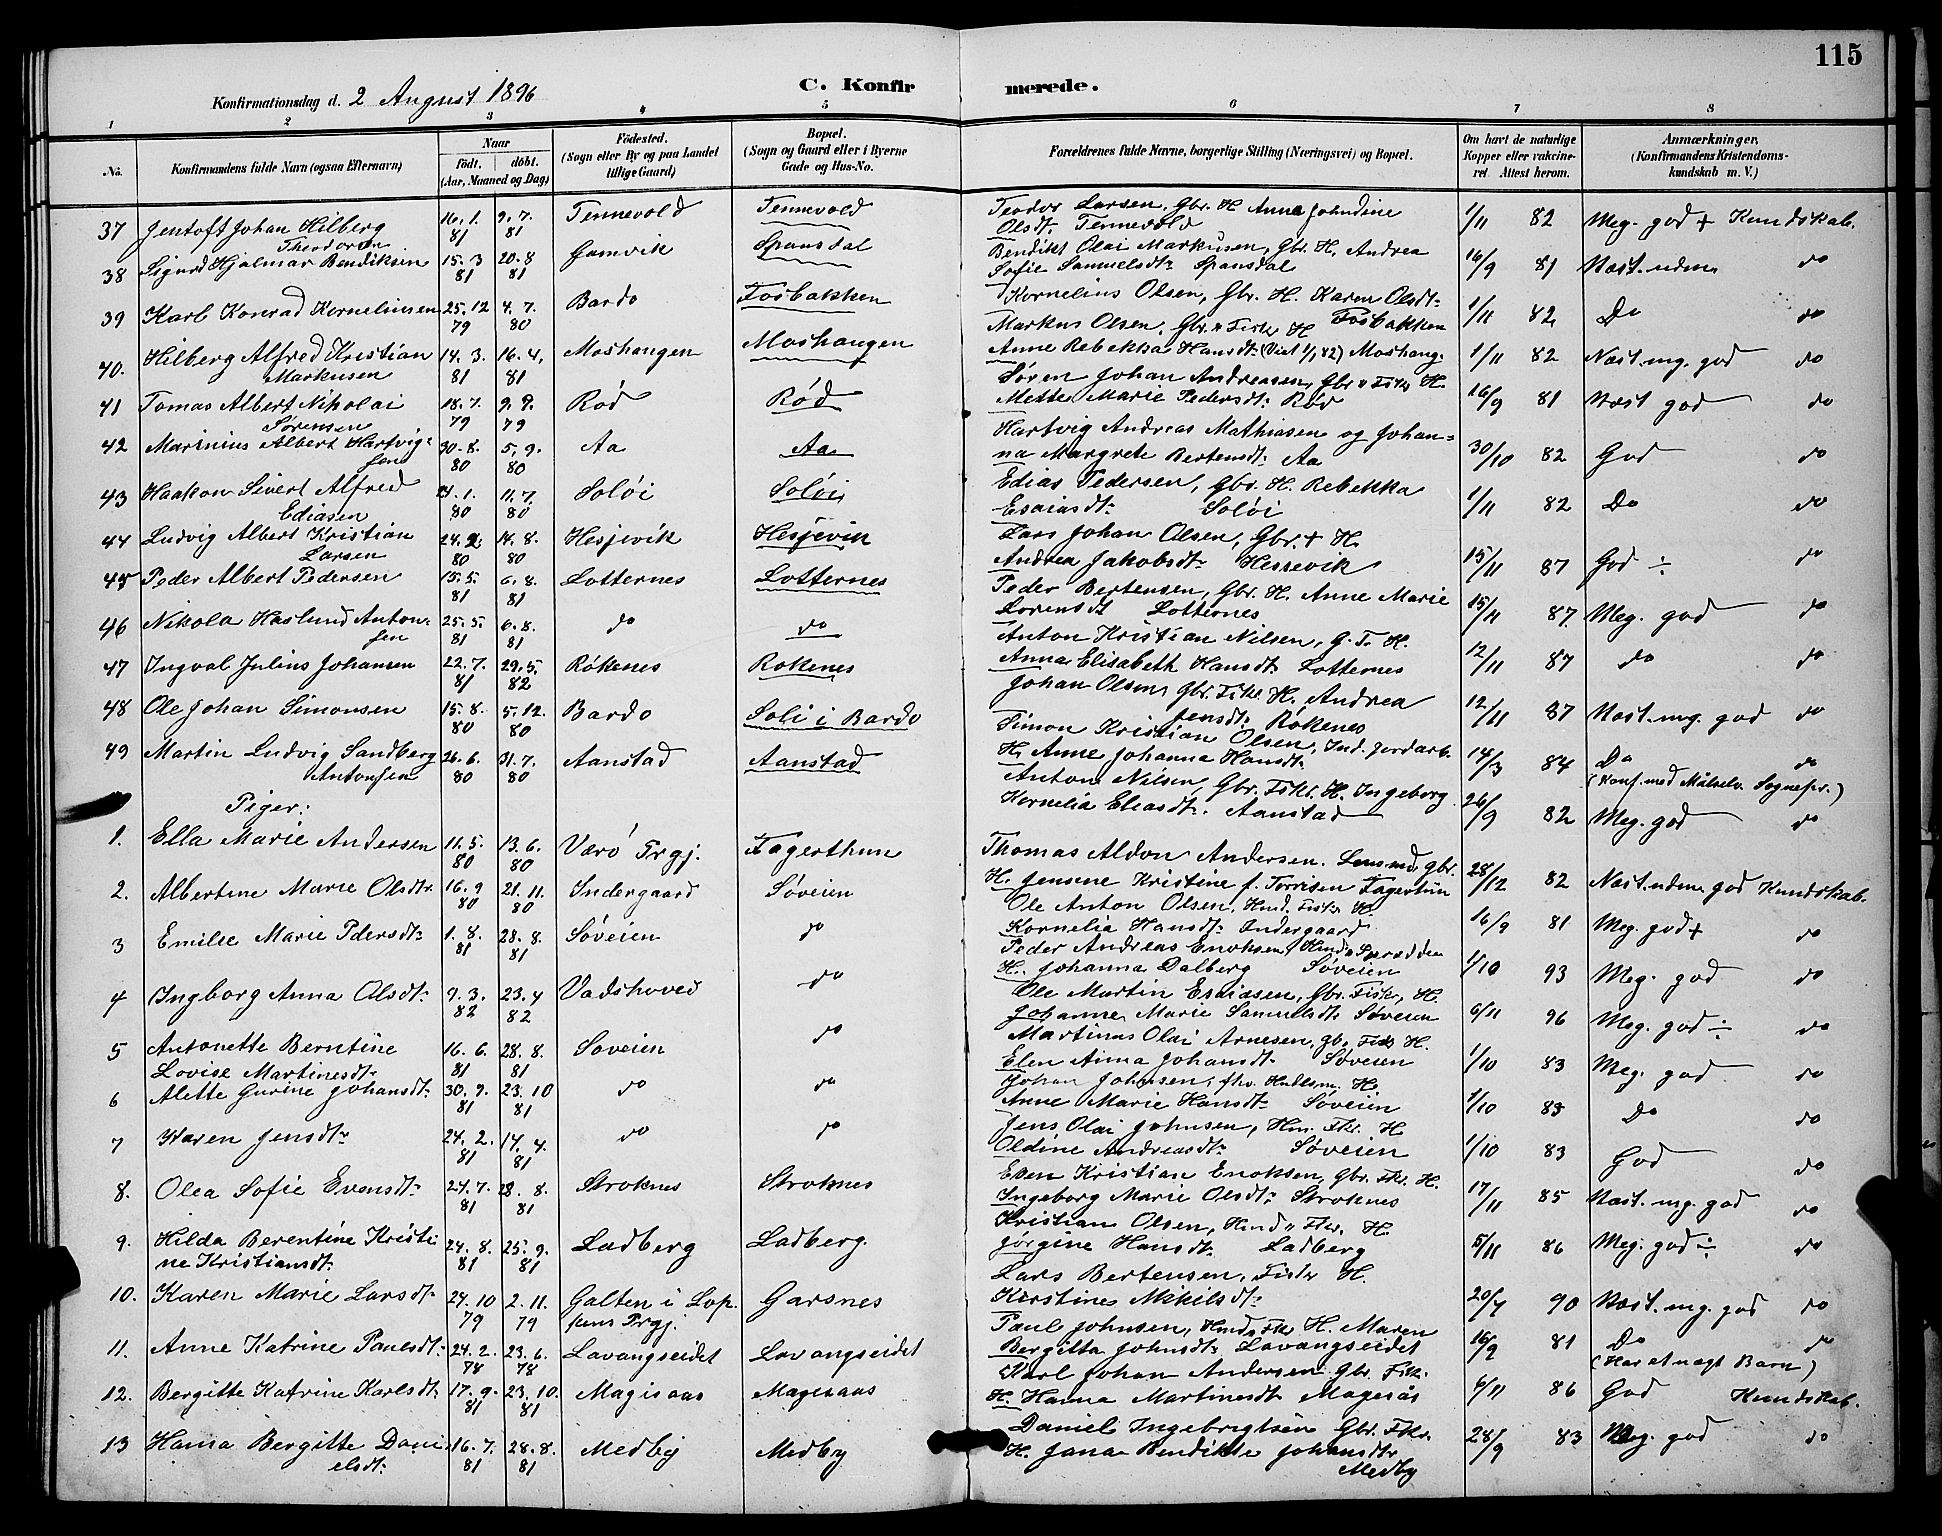 115
Konfirmationsdag d. 2 August 1896
C. Konfirmerede.
1 2 3 4 5 6 7 8
No. Konfirmandens fulde Navn (ogsaa Efternavn) Naar født. døbt. (Aar, Maaned og Dag) Fødested. (Sogn eller By og paa Landet tillige Gaard) Bopæl. (Sogn og Gaard eller i Byerne Gade og Hus-No. Forældrenes fulde Navne, borgerlige Stilling (Næringsvei) og Bopæl. Om havt de naturlige Kopper eller vakcineret. Attest herom. Anmærkninger, (Konfirmandens Kristendomskundskab m. V.)
37 Jentoft Johan Hilberg Theodorsen 16. 1. 81 9. 7. 81 Tennevold Tennevold Teodor Larsen, Gbr. H. Anne Johndine Olsdt. Tennevold 1/11 82 Meg. god + Kundskab.
38 Sigurd Hjalmar Bendiksen 15. 3 81 20. 8 81 Gamvik Spansdal Bendikt Olai Markusen, Gbr. H. Andrea Sofie Samuelsdt. Spansdal 16/9 81 Næst. udm. do
39 Karl Konrad Korneliusen 25. 12 79 4. 7. 80 Bardo Fosbakken Kornelius Olsen, Gbr. H. Karen Olsdt. Fosbakken 1/11 82 Do do
40. Hilberg Alfred Kristian Markusen 14. 3. 81 16. 4, 81 Moshaugen Moshaugen Markus Olsen, Gbr. Fisk. H Anne Rebekka Hansdt. (Viet 1/1 82) Moshaug. 1/11 82 Næst. mg. god do
41 Tomas Albert Nikolai Sørensen 18. 7. 79 9. 9. 79 Rød Rød Søren Johan Andreasen, Gbr. Fisk. H. Mette Marie Pedersdt. Rød 16/9 81 Næst god do
42 Marinius Albert Hartvigsen 30. 8. 80 5. 9. 80 Aa Aa Hartvig Andreas Mathiasen og Johanna Margrete Bertensdt. Aa 30/10 82 God do
43 Haakon Sivert Alfred Ediasen 21. 1. 80 11. 7. 80 Soløi Soløi Edias Pedersen, Gbr. H. Rebekka Esaiasdt. Soløi 1/11 82 Do do
44 Ludvig Albert Kristian Larsen 24. 2. 80 14. 8. 80 Hesjevik Hesjevik Lars Johan Olsen, Gbr. + H. Andrea Jakobsdt. Hessevik 15/11 87 God ÷ do
45 Peder Albert Pedersen 15. 5. 81 6. 8. 81 Lotternes Lotternes Peder Bertensen, Gbr. H. Anne Marie Lorensdt Lotternes 15/11 87. Meg. god do
46 Nikola Haslund Antonsen 25. 5. 81 6. 8. 81 do do Anton Kristian Nilsen, G. F. H. Anna Elisabeth Hansdt. Lotternes 12/11 87 do do
47 Ingval Julius Johansen 22. 7. 81 29. 5. 82 Røkenes Rokenes Johan Olsen, Gbr. Fisk. H. Andrea Jensdt. Røkenes 12/11 87 Næst. mg. god do
48 Ole Johan Simonsen 15. 8. 80 5. 12. 80 Bardo Soli i Bardo Simon Kristian Olsen, Ind. Jordarb. H. Anne Johanna Hansdt. 14/3 84 Do do (Konf. med Målselv. Sognepr.)
49 Martin Ludvig Sandberg Antonsen 26. 6. 80 31. 7. 80 Aanstad Aanstad Anton Nilsen, Gbr. Fisk. H. Ingeborg Kornelia Eliasdt. Aanstad 26/9 82 Meg. god do
Piger:
1. Ella Marie Andersen 11. 5. 80 13. 6. 80 Værø Prgj. Fagerthun Thomas Aldon Andersen. Lensmd, gbr. H. Jensine Kristine f. Torrisen Fagertun 28/12 82 Næst. udm. god Kundskab.
2. Albertine Marie Olsdtr. 16. 9 80 21. 11. 80 Indergaard Søveien Ole Anton Olsen, Hmd. Fisk. H. Kornelia Hansdt. Indergaard 16/9 81 Meg. god + do
3 Emilie Marie Pdersdt. 1. 8. 81 28. 8. 81 Søveien do Peder Andreas Enoksen, Hmd. H. Johanna Dalberg Søveien 1/10 93 Meg. god do
4 Ingborg Anna Olsdt. 9. 3. 82 23. 4 82 Vadshoved do Ole Martin Esaiasen, Gbr. Fisk. H. Johanne Marie Samuelsdt. Søveien 6/11 96 Meg. god ÷ do
5 Antonette Berntine Lovise Martinesdt. 16. 6. 81 28. 8. 81 Soveien do Martinus Olai Arnesen, gb. Fisk H. Elen Anna Johansdt. Søveien 1/10 83 Meg. god do
6 Alette Gurine Johansdt. 30. 7. 81 23. 10 81 do do Johan Johnsen, fhv. Husm. H. Anne Marie Hansdt. Søveien 1/10 83 Do do
7 Karen Jensdtr 24. 2. 81 17. 4. 81 do do Jens Olai Johnsen, Hm. Fkr. H Oldine Andreasdt. Søveien 1/10 83 God do
8. Olea Sofie Evensdt. 24. 7. 81 28. 8. 81 Stroknes Stroknes Even Kristian Enoksen, Gbr. Fkr. H. Ingeborg Marie Olsdt. Stroknes 17/11 85 Næst. mg. god do
9. Hilda Berentine Kristine Kristiansdt. 24. 8. 81 25. 9. 81 Ladberg Ladberg. Kristian Olsen, Hmd. Fkr. H. Jørgine Hansdt. Ladberg 5/11 86 Meg. god ÷ do
10. Karen Marie Larsdt. 24. 10 79 2. 11. 79 Galten i Loppens Prgj. Garsnes Lars Bertensen, Fisk. H. Kirstine Mikkilsdt. 20/7 90 Næst. mg. god do
11. Anne Katrine Paulsdt. 24. 2. 78 23. 6. 78 Lavangseidet Lavangseidet Paul Johnsen, Hmd. Fkr H. Maren Bergitta Johnsdt. Lavangseidet 16/9 81 Do do (Har et uægt Barn)
12. Bergitte Katrine Karlsdt. 17. 9. 81 23. 10. 81 Magisaas Magesaas Karl Johan Andersen. Gbr. Fisk. H. Hanna Martinesdt. Magesås 6/11 86 God Kundskab.
13 Hansa Bergitte Danielsdt. 16. 7. 81 28. 8. 81 Medby Medby Daniel Ingebrigtsen Gbr. Fkr. H. Jana Bendikte Johansdt. Medby 28/9 83 Meg. god do